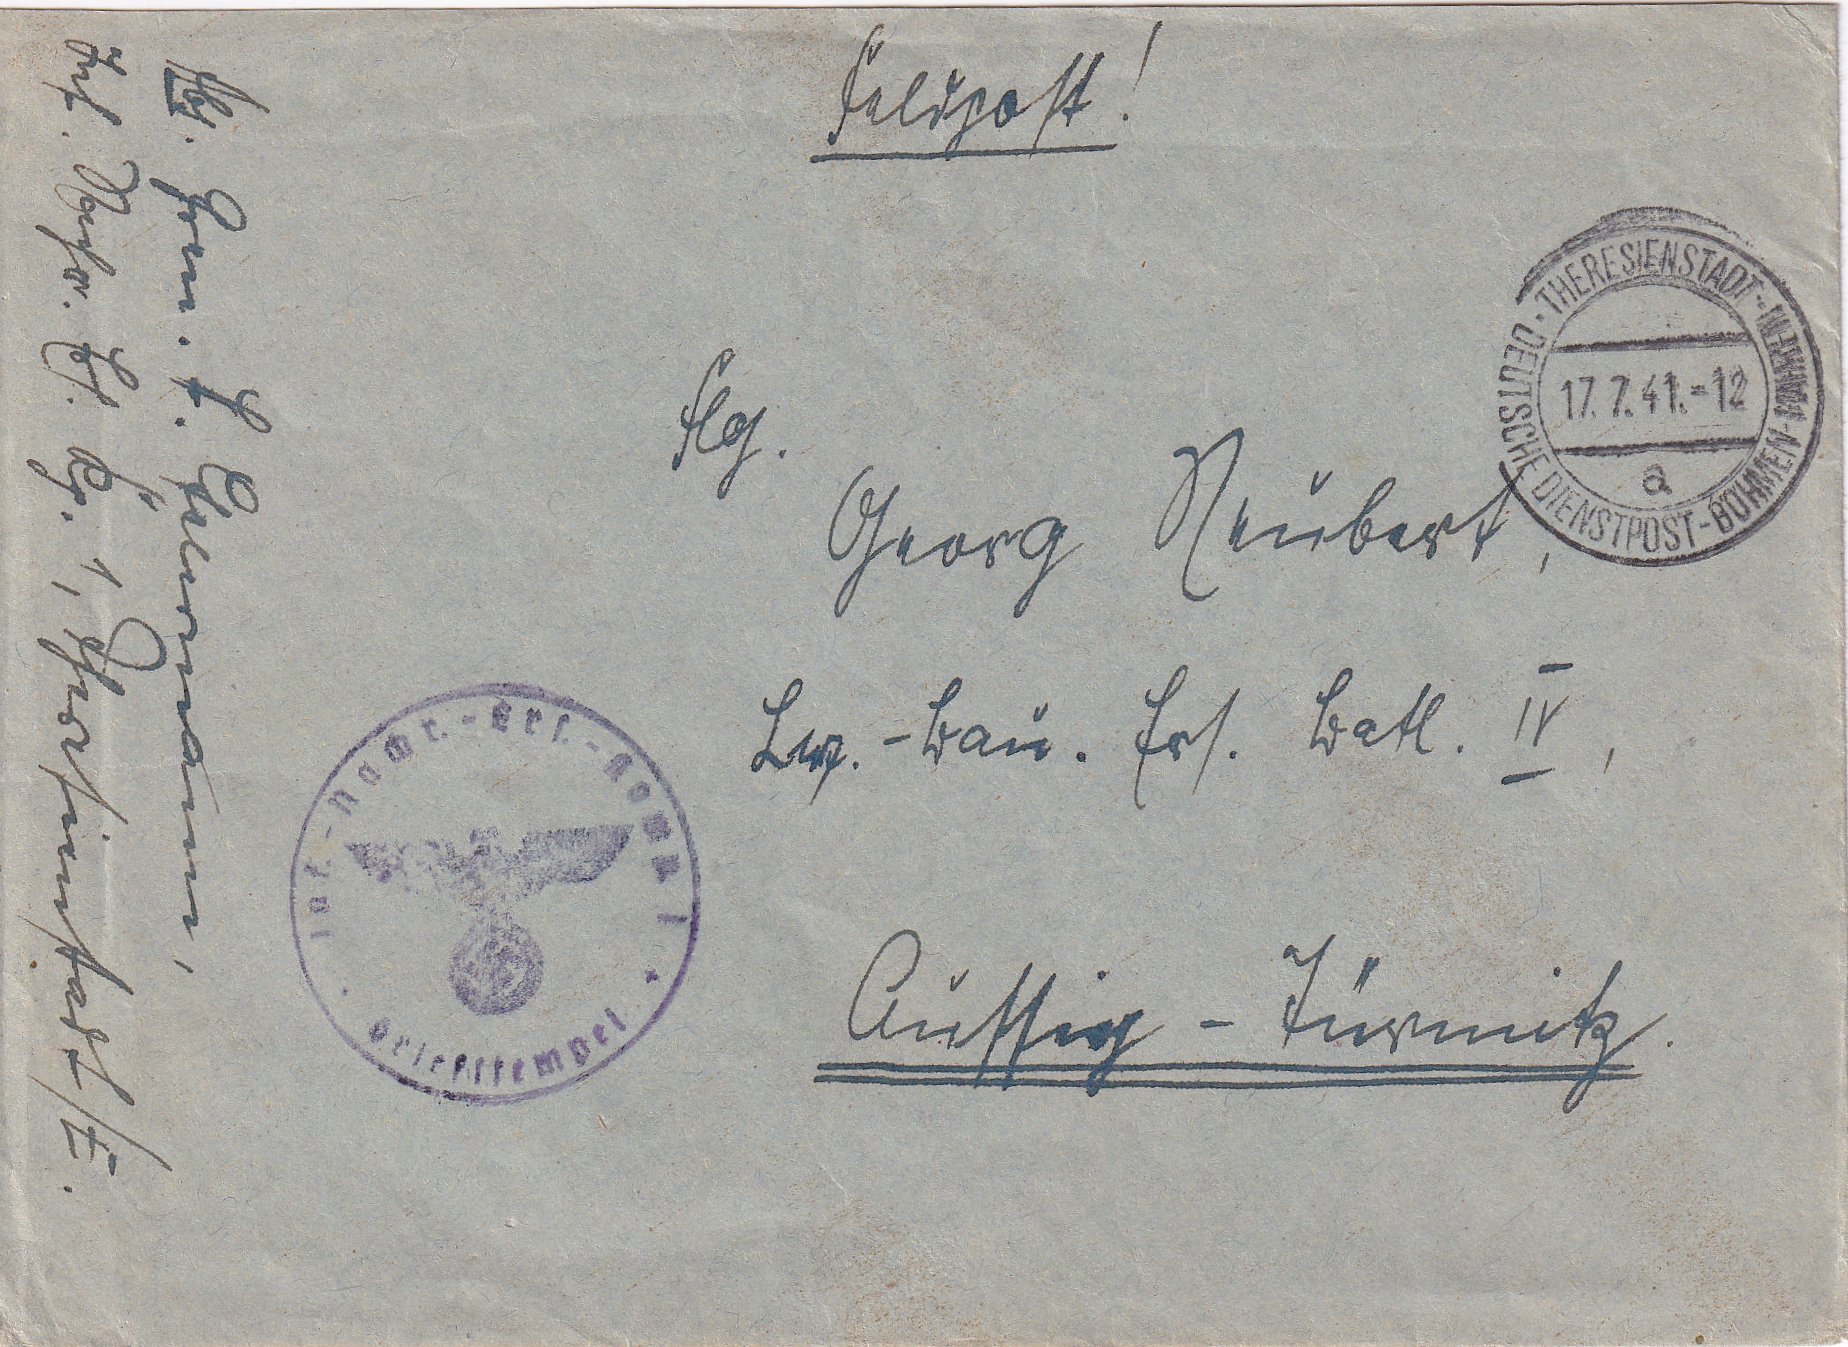 Feldpost!
DEUTSCHE DIENSTPOST - BÖHMEN - MÄHREN
· THERESIENSTADT ·
17.7.41.-12
a
Flg.
Georg Neubert,
Lw.-Bau. Ers. Batl. IV,
Aussig - Türmitz.
Inf.-Nachr.-Ers.-Komp. 1
Briefstempel
Inf. Nachr. Ers. Kp. 1, Theresienstadt/E.